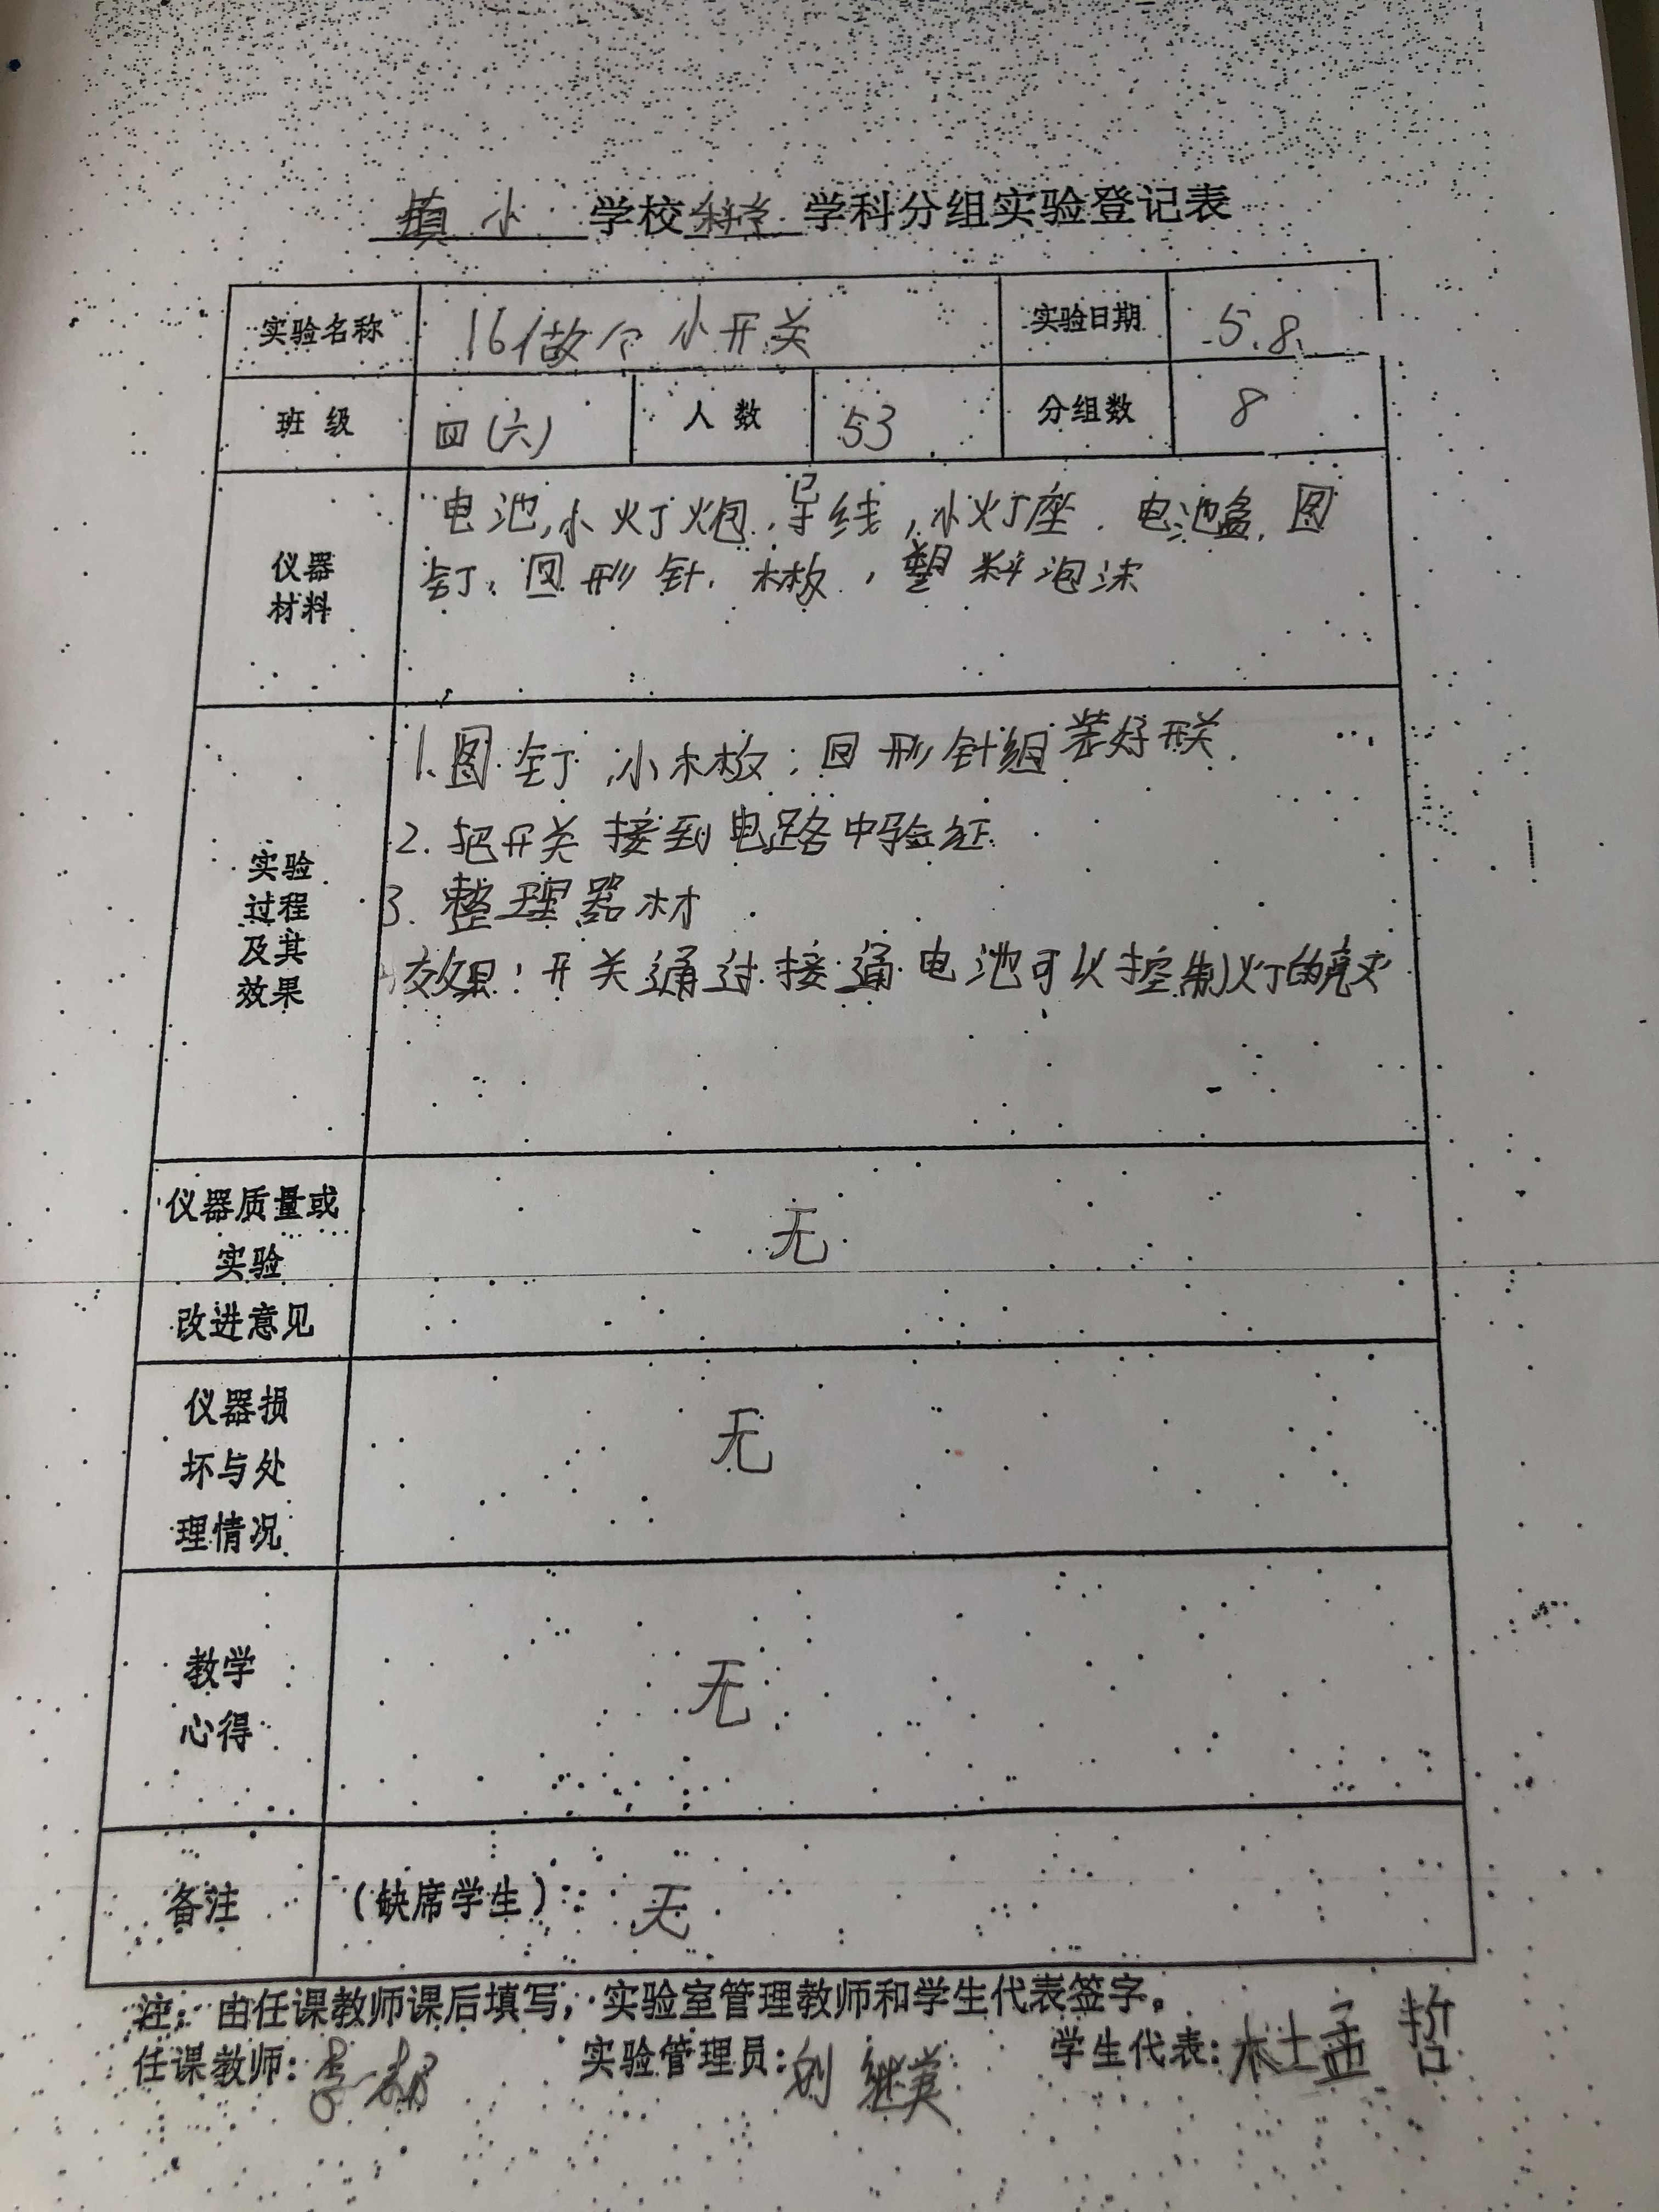 镇小 学校 科学 学科分组实验登记表
实验名称 16做个小开关 实验日期 5.8.
班级 四(六) 人数 53 分组数 8
仪器
材料
电池,小灯炮.导线,小灯座.电池盒.图
钉.回形针.木板,塑料泡沫
实验
过程
及其
效果
1.图钉,小木板,回形针组装好开关.
2.把开关接到电路中验证.
3.整理器材
效果:开关通过接通电池可以控制灯的亮灭
仪器质量或
实验
改进意见
无
仪器损
坏与处
理情况
无
教学
心得
无
备注 (缺席学生): 无
注:由任课教师课后填写,实验室管理教师和学生代表签字。
任课教师: 实验管理员:刘继英 学生代表:杜孟哲